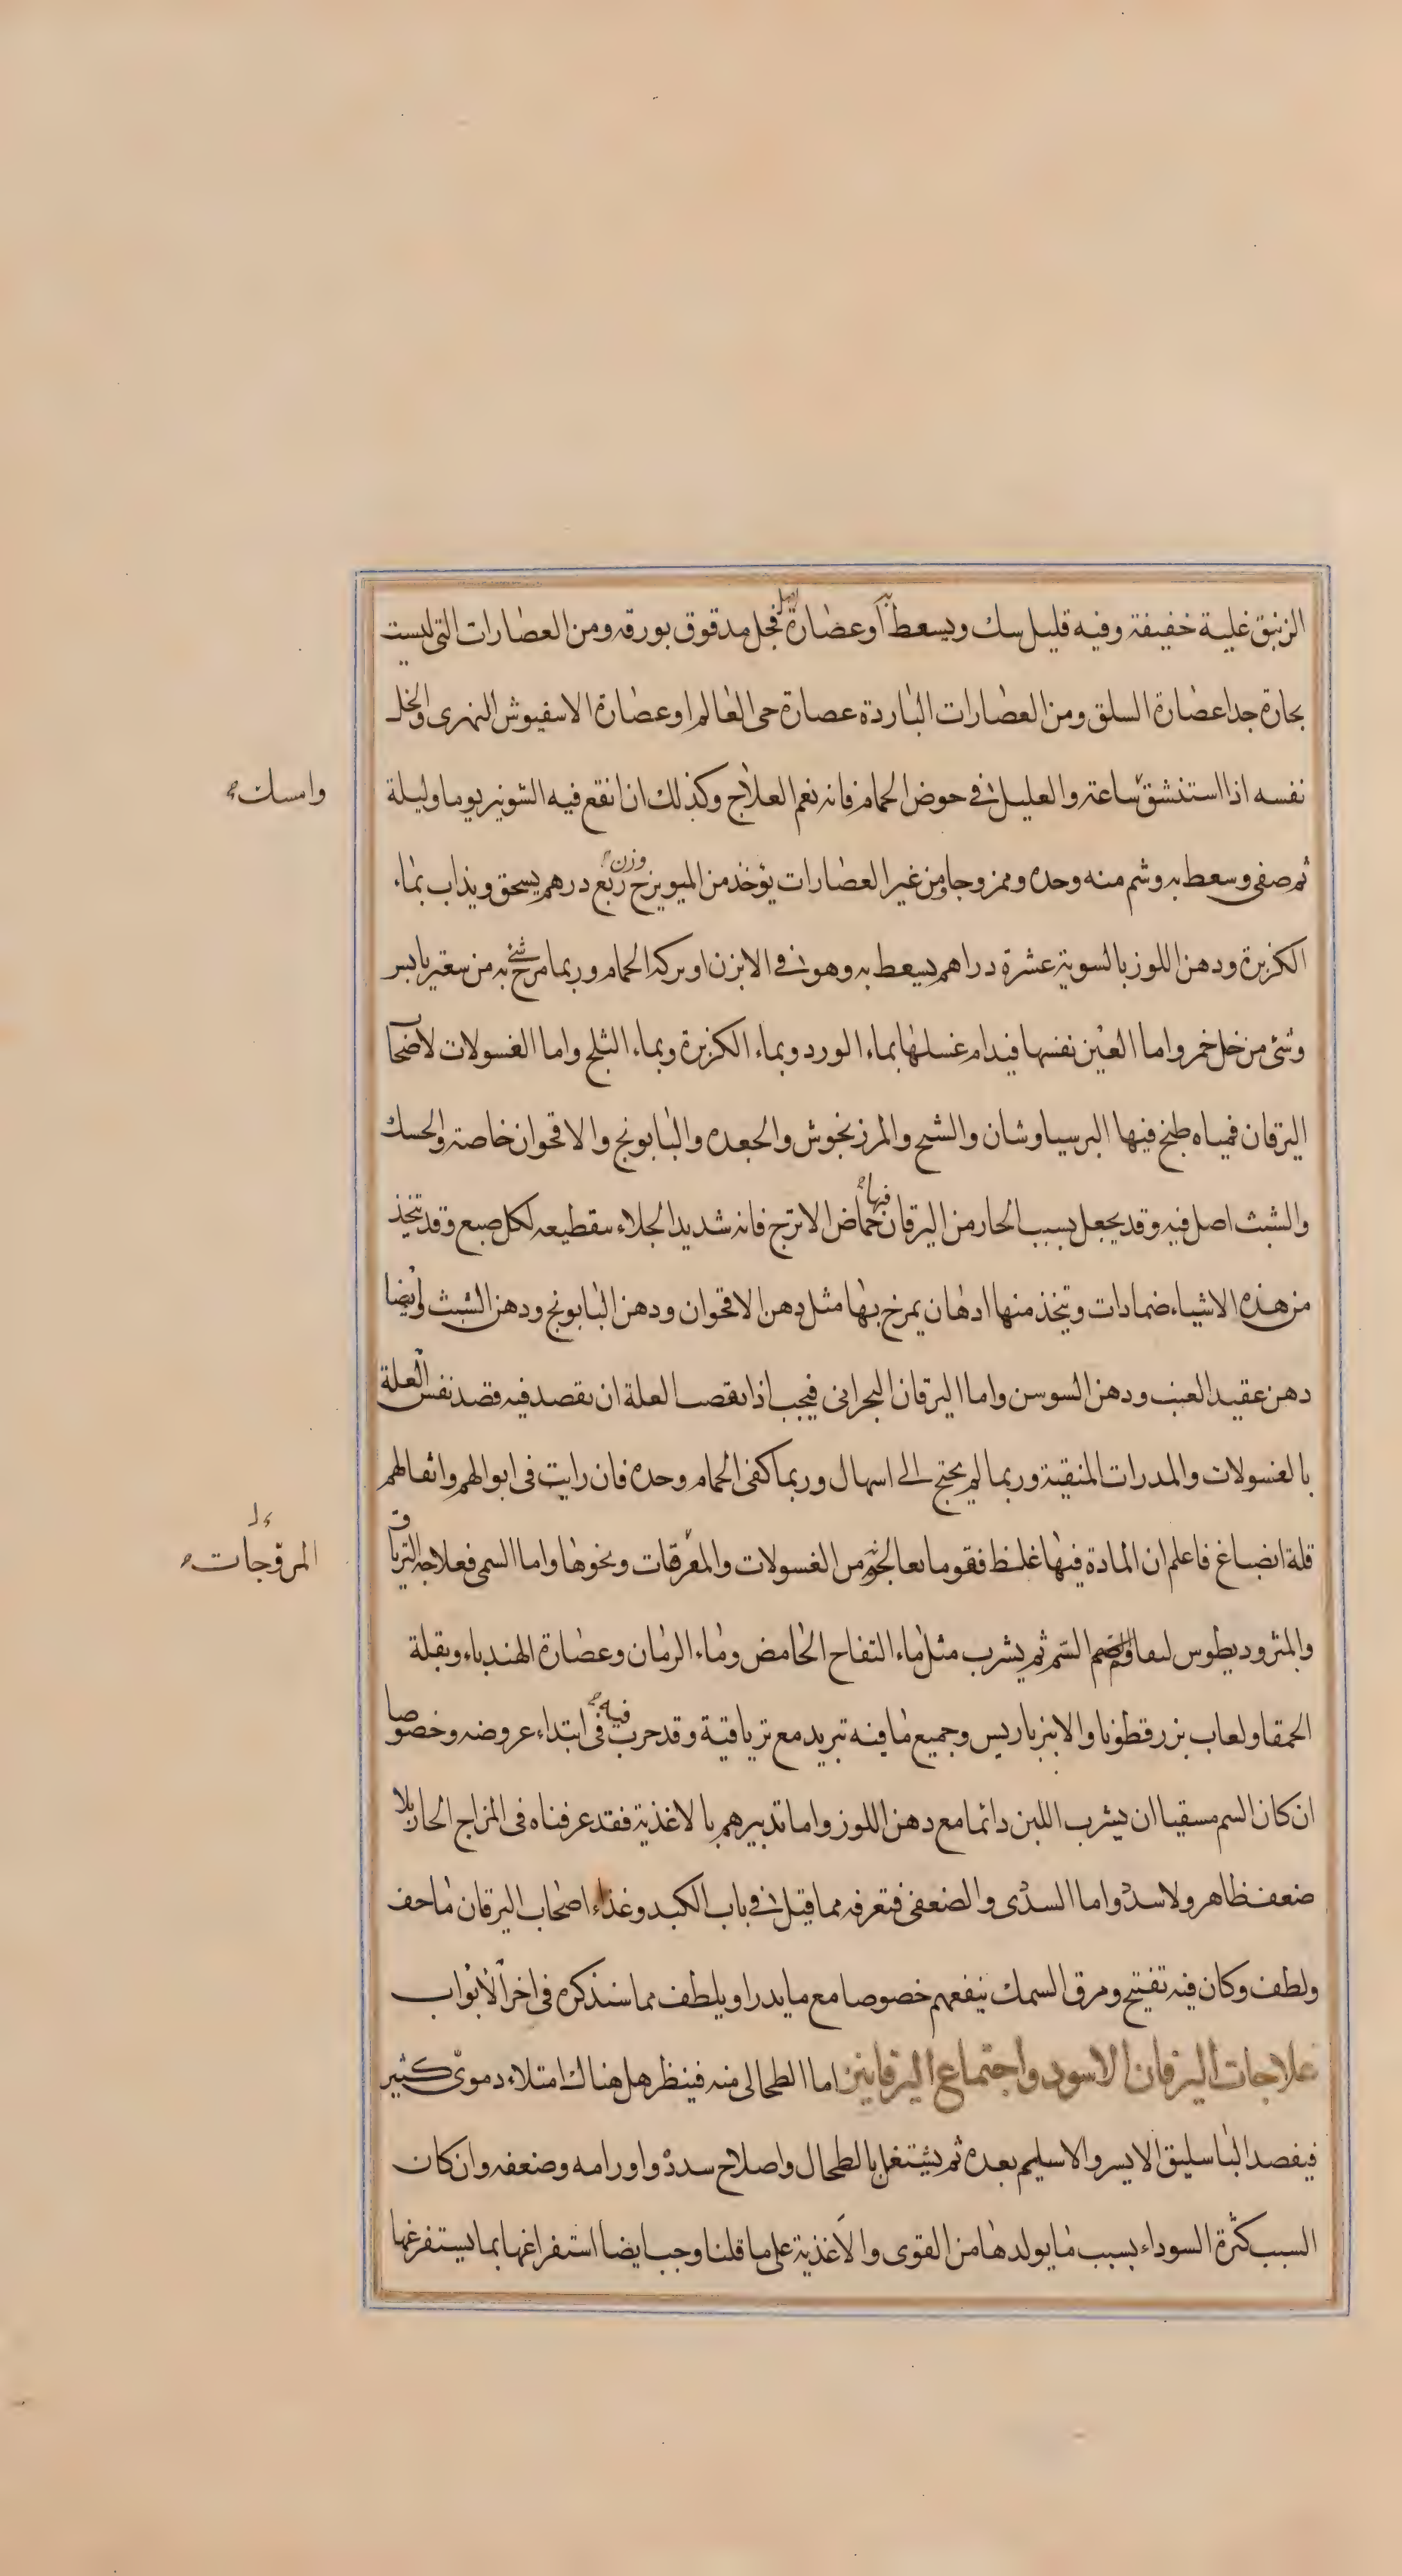 الزنبق غلية خفيفة وفيه قليل سك ويسعط به اوعصارة اصل فجل مدقوق بورقه ومن العصارات التى ليست
بحارة جدا عصارة السلق ومن العصارات الباردة عصارة حى العالم اوعصارة الاسفيوش النهرى والخل
نفسه اذا استنشق ساعة والعليل فى حوض الحمام فانه نعم العلاج وكذلك ان انقع فيه الشونيز يوما وليلة
وامسك
ثم صفى وسعط به وشم منه وحده وممزوجا ومن غير العصارات يؤخذ من الميويزج وزن ربع درهم يسحق ويذاب بماء
الكزبرة ودهن اللوز بالسوية عشرة دراهم يسعط به وهو فى الابزن او بركة الحمام وربما مرخ به من سعتر يابس
وشئ من خل خمر واما العين نفسها فيدام غسلها بماء الورد وبماء الكزبرة وبماء الثلج واما الغسولات لاصحاب
اليرقان فمياه طبخ فيها البرسياوشان والشيح والمرزنجوش والجعده والبابونج والاقحوان خاصة والحسك
والشبث اصل فيه وقد يجعل بسبب الحار من اليرقان فيها حماض الاترج فانه شديد الجلاء بتقطيعه لكل صبغ وقد تتخذ
من هذه الاشياء ضمادات وتتخذ منها ادهان يمرخ بها مثل دهن الاقحوان ودهن البابونج ودهن الشبث وايضا
دهن عقيد العنب ودهن السوسن واما اليرقان البحرانى فيجب اذا نقصت العلة ان يقصد فيه قصد نفس العلة
بالغسولات والمدرات المنقية وربما لم يحتج الى اسهال وربما كفى الحمام وحده فان رايت فى ابوالهم واثفالهم
قلة انصباغ فاعلم ان المادة فيها غلظ فقو ما تعالجهم به من الغسولات والمعرقات ونحوها واما السمى فعلاجه الترياق
المروجات
والمثروديطوس السم ثم يشرب مثل ماء التفاح الحامض وماء الرمان وعصارة الهندباء وبقلة
الحمقا ولعاب بزر قطونا والانبرباريس وجميع ما فيه تبريد مع ترياقية وقد جرب فيه فى ابتداء عروضه وخصوصا
ان كان السم مسقيا ان يشرب اللبن دائما مع دهن اللوز واما تدبيرهم بالاغذية فقد عرفناه فى المزاج الحار بلا
ضعف ظاهر ولا سدد واما السدى والضعفى فتعرفه مما قيل فى باب الكبد وغذاء اصحاب اليرقان ما خف
ولطف وكان فيه تفتيح ومرق السمك ينفعهم خصوصا مع ما يدر او يلطف مما سنذكره فى اخر الابواب
علاجات اليرقان الاسود واجتماع اليرقانين اما الطحالى منه فينظر هل هناك امتلاء دموى كثير
فيفصد الباسليق الايسر والاسليم بعده ثم يشتغل بالطحال واصلاح سدده واورامه وضعفه وان كان
السبب كثرة السوداء بسبب ما يولدها من القوى والاغذية على ما قلنا وجب ايضا استفراغها بما يستفرغها